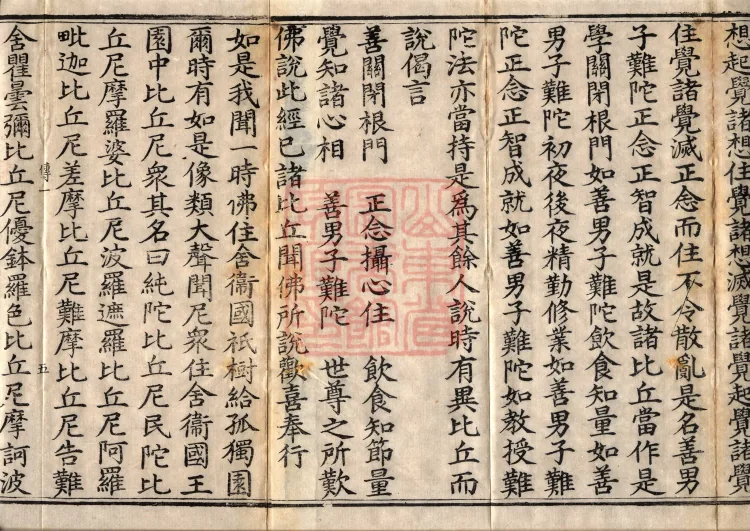 想起覺諸想住覺諸想滅覺諸覺起覺諸覺
住覺諸覺滅正念而住不令散亂是名善男
子難陀正念正智成就是故諸比丘當作是
學關閉根門如善男子難陀飲食知量如善
男子難陀初夜後夜精勤修業如善男子難
陀正念正智成就如善男子難陀如教授難
陀法亦當持是為其餘人說時有異比丘而
說偈言
善關閉根門　正念攝心住　飲食知節量
覺知諸心相　善男子難陀　世尊之所歎
佛說此經已諸比丘聞佛所說歡喜奉行
如是我聞一時佛住舍衞國祇樹給孤獨園
爾時有如是像類大聲聞尼衆住舍衞國王
園中比丘尼衆其名曰純陀比丘尼民陀比
丘尼摩羅婆比丘尼波羅遮羅比丘尼阿羅
毗迦比丘尼差摩比丘尼難摩比丘尼告難
傳一　五
舍瞿曇彌比丘尼優鉢羅色比丘尼摩訶波